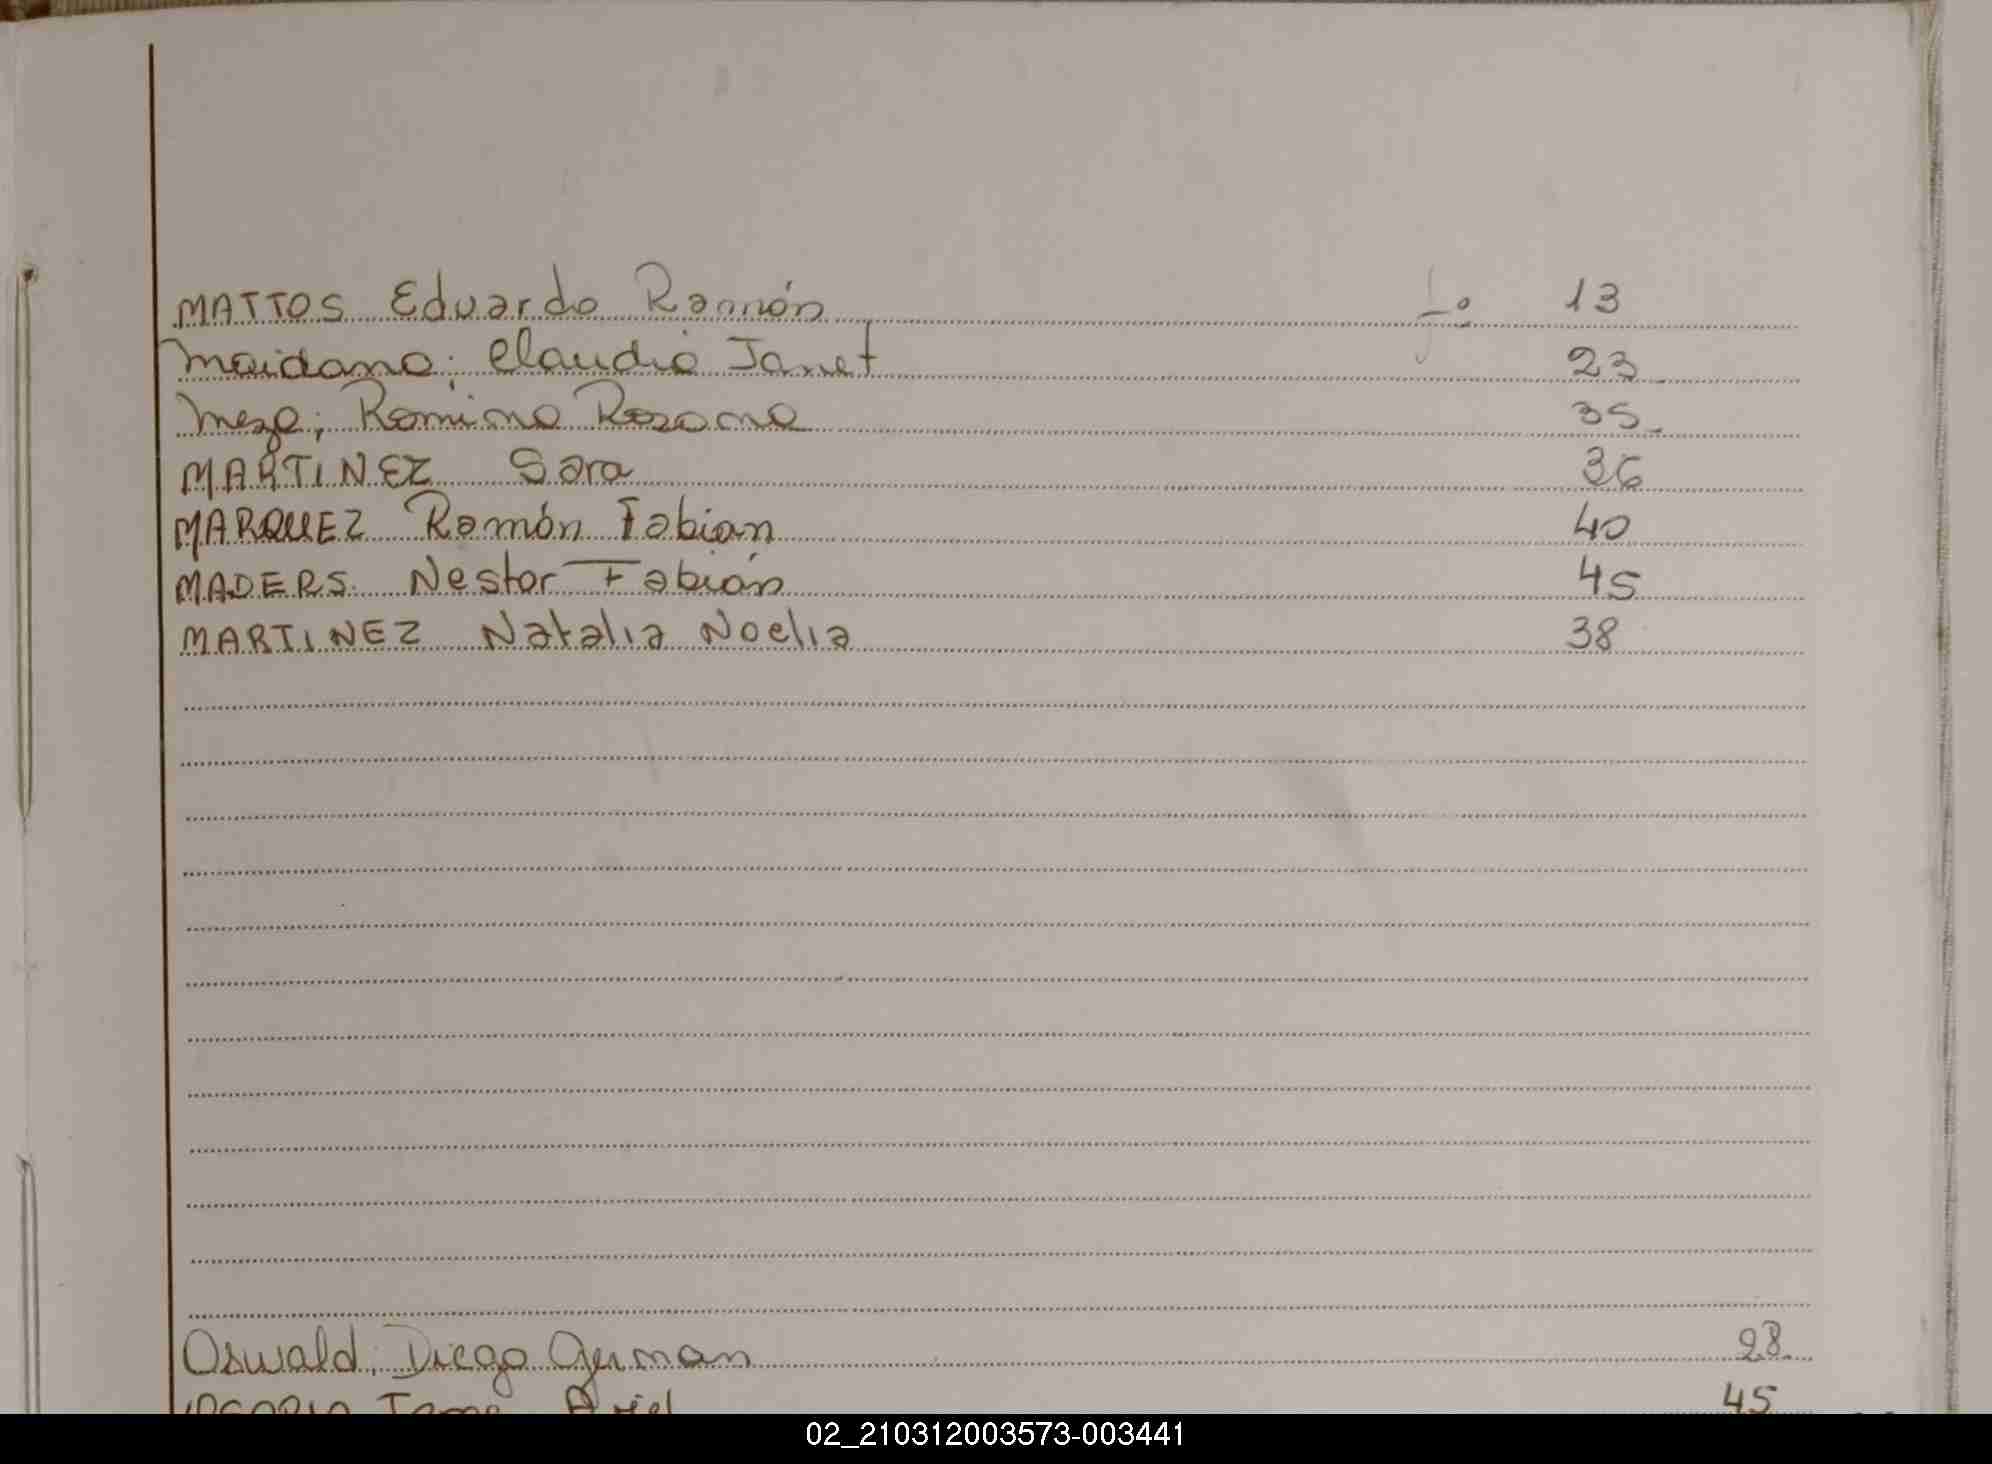 MATTOS Eduardo Ramón fº 13
Maidana; Claudia Janet 23
Meza; Romina Rosana 35
MARTINEZ Sara 36
MARQUEZ Ramón Fabian 40
MADERS Nestor Fabián 45
MARTINEZ Natalia Noelia 38
Oswald, Diego German 28
Ariel 45
02_210312003573-003441